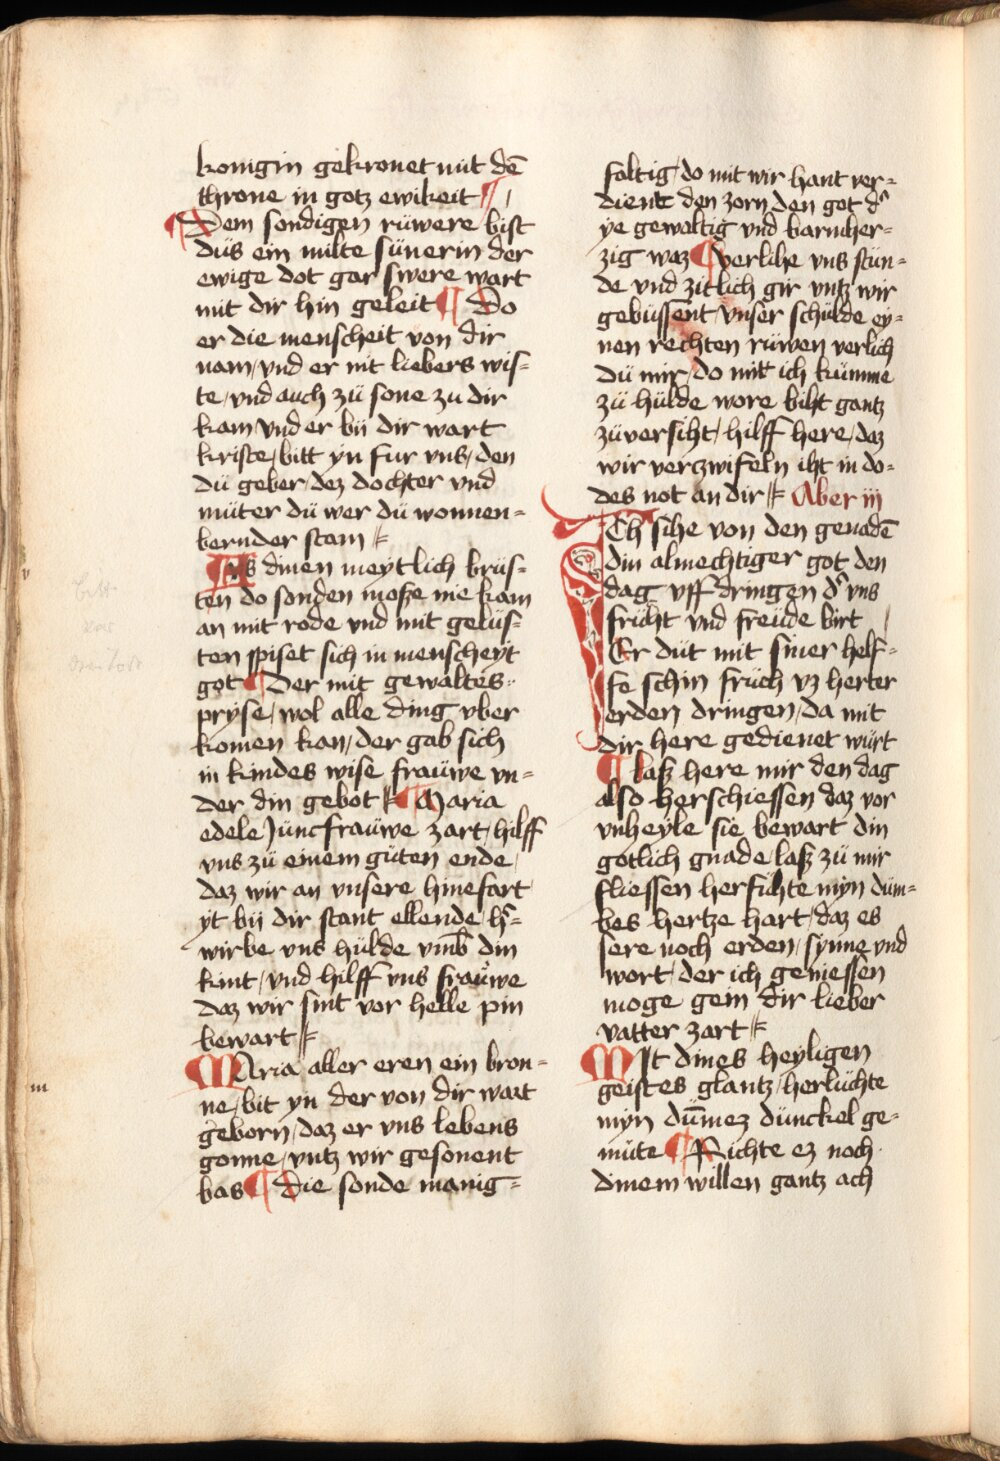 konigin gekronet mit dē
throne in gotz ewikeit ¶
¶ Dem sondigen rüwere bist
düs ein milte sünerin der
ewige dot gar swere wart
mit dir hin geleit ¶ Do
er die menscheit von dir
nam / vnd er nit liebers wis=
te / vnd auch zü sone zu dir
kam vnd er bij dir wart
kriste / bitt yn fur vns / den
dü geber / dez dochter vnd
müter dü wer dü wonnen=
bernder stam
Us dinen meytlich brüs=
ten do sonden mosze nie kam
an mit rode vnd mit gelüs=
ten spiset sich in menscheyt
got ¶ Der mit gewaltes=
pryse / wol alle ding vber
komen kan / der gab sich
in kindes wise fraüwe vn=
der din gebot ¶ Maria
edele Jüncfraüwe zart / hilff
vns zü einem güten ende /
daz wir an vnsere hinefart
yt bij dir stant ellende / h̄=
wirbe vns hülde vmb din
kint / vnd hilff vns fraüwe
daz wir sint vor helle pin
bewart
MAria aller eren ein bron=
ne / bit yn der von dir wart
geborn / daz er vns lebens
gonne / vntz wir gesonent
bas ¶ die sonde manig=
foltig / do mit wir hant ver=
dient den zorn den got d̓
ye gewaltig vnd barmher=
zig waz ¶ verlihe vns stün=
de vnd zitlich gir vntz wir
gebüssent vnser schülde ey=
nen rechten rüwen verlich
dü mir / do mitt ich kümme
zü hülde wore biht gantz
züversiht / hilff here / daz
wir verzwifeln iht in do=
des not an dir Aber iij
ICh sihe von den genadē
din almechtiger got den
dag vff dringen d̓ vns
früht vnd freüde birt
Er düt mit siner helf=
fe schin früch vz herter
erden dringen / da mit
dir here gedienet würt
¶ lasz here mir den dag
also herschiessen daz vor
vnheyle sie bewart din
gotlich gnade / lasz zü mir
fliessen herfühte myn düm=
bes hertze hart / daz es
sere noch erden / synne vnd
wort / der ich geniessen
moge gein dir lieber
vatter zart
MIt dines heyligen
geistes glantz / herlüchte
myn dūmez dünckel ge=
müte ¶ Richte ez noch
dinem willen gantz ach
v
m